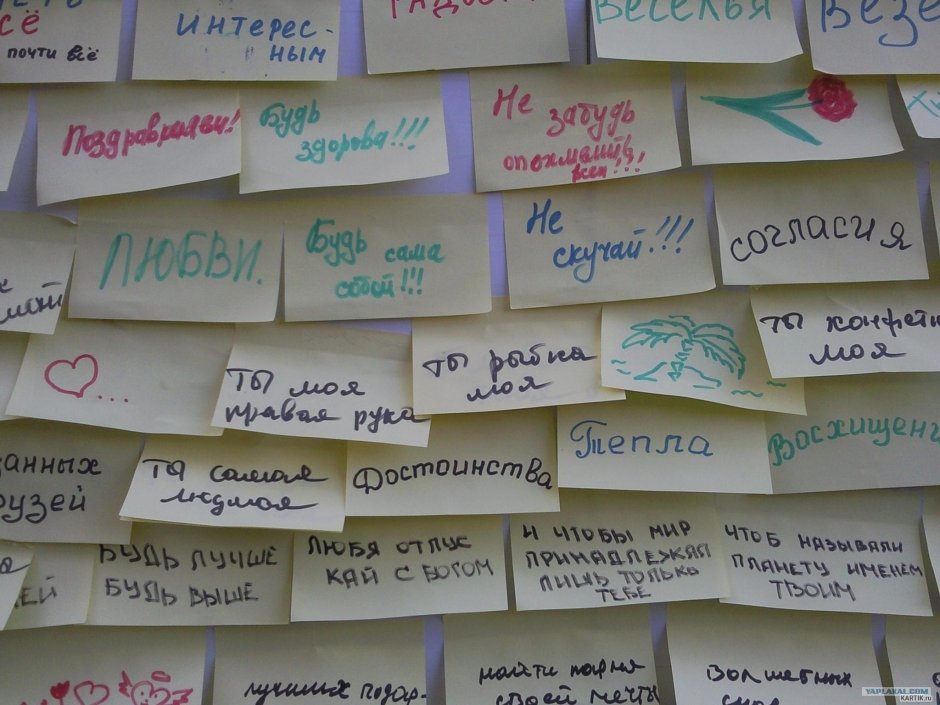 сё
почти всё
ИНТЕРЕС-
НЫМ
ВЕСЕЛЬЯ
ВЕЗЕ
Поздравляем!
Будь
здорова!!!
Не
забудь
опохмелить
всех!!!
ЛЮБВИ.
Будь сама
собой!!!
Не
скучай!!!
согласия
...
ты моя
правая рука
ты рыбка
моя
ты конфетк
моя
данных
рузей
ты самая
людмая
Достоинства
Тепла
Восхищени
БУДЬ ЛУЧШЕ
БУДЬ ВЫШЕ
ЛЮБЯ ОТПУС
КАЙ С БОГОМ
И ЧТОБЫ МИР
ПРИНАДЛЕЖАЛ
ЛИШЬ ТОЛЬКО
ТЕБЕ
ЧТОБ НАЗЫВАЛИ
ПЛАНЕТУ ИМЕНЕМ
ТВОИМ
ЕЙ
лучших подар-
найти парня
своей мечты
волшебных
снов
YAPLAKAL.COM
KARTIK.ru